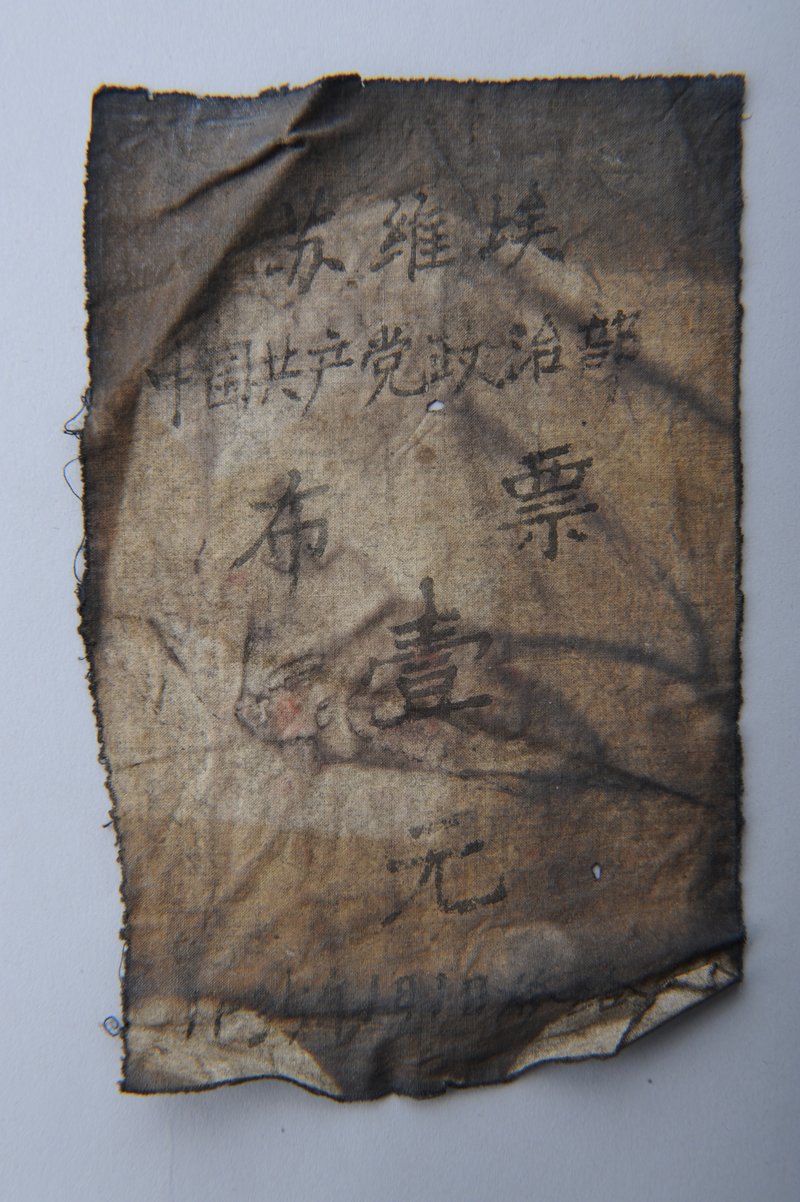 苏维埃
中国共产党政治部
布 票
壹
元